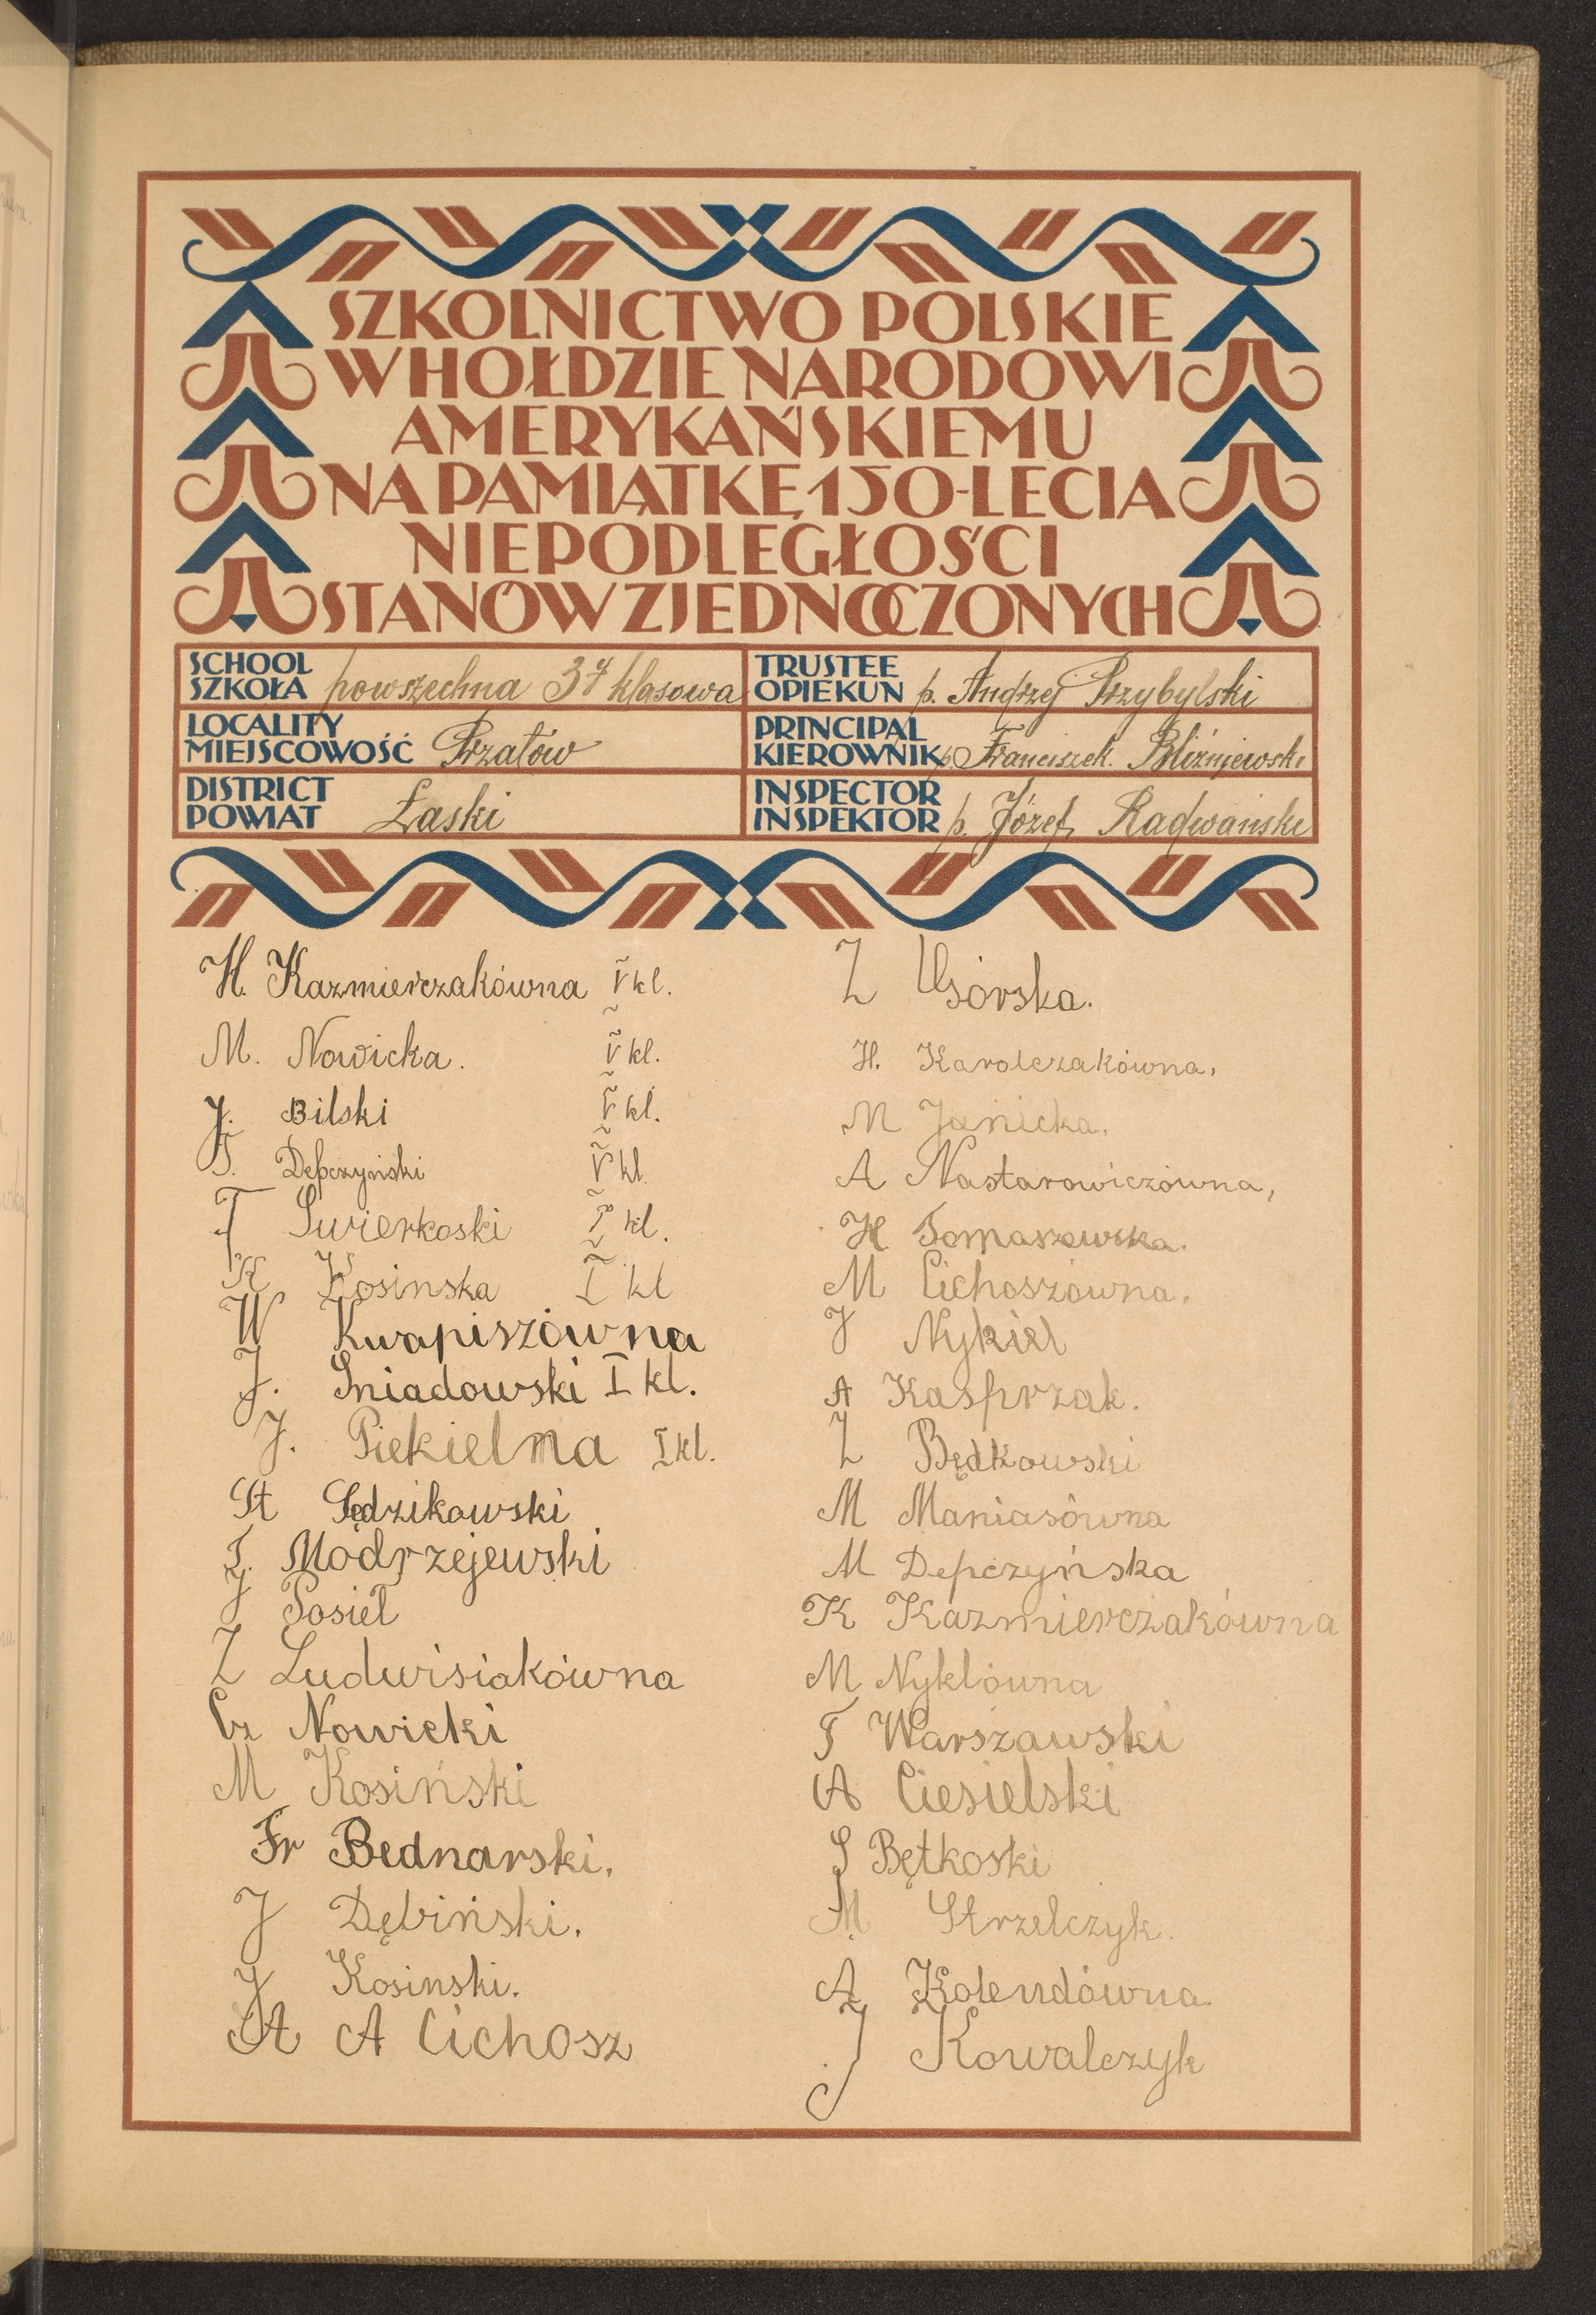 SZKOLNICTWO POLSKIE
W HOŁDZIE NARODOWI
AMERYKAŃSKIEMU
NA PAMIĄTKĘ 150-LECIA
NIEPODLEGŁOŚCI
STANÓW ZJEDNOCZONYCH
SCHOOL
SZKOŁA powszechna 3 klasowa
LOCALITY
MIEJSCOWOŚĆ Przatów
DISTRICT
POWIAT Łaski
TRUSTEE
OPIEKUN p. Andrzej Przybylski
PRINCIPAL
KIEROWNIK p. Franciszek. Bliźniewski
INSPECTOR
INSPEKTOR p. Józef Radwański
H. Kazmierczakówna V kl.
M. Nowicka. V kl.
J. Bilski V kl.
Depczyński V kl.
T Swierkoski kl.
K Kosinska I kl
W Kwapiszówna
J. Sniadowski I kl.
J. Piekielna I kl.
St Sędzikowski
T. Modrzejewski
J Posieł
Z Ludwisiakówna
Cz Nowicki
M Kosiński
Fr Bednarski.
J Dębiński.
J Kosinski.
A A Cichosz
Z Górska.
H. Karolczakówna,
M Janicka.
A Nastarowiczówna,
H Tomaszewska.
M Cichoszówna.
J Nykiel
A Kasprzak.
Z Będkowski
M Maniasówna
M Depczyńska
K Kazmierczakówna
M Nyklówna
T Warszawski
A Ciesielski
S Bętkoski
M Strzelczyk.
A Kolendówna.
J Kowalczyk